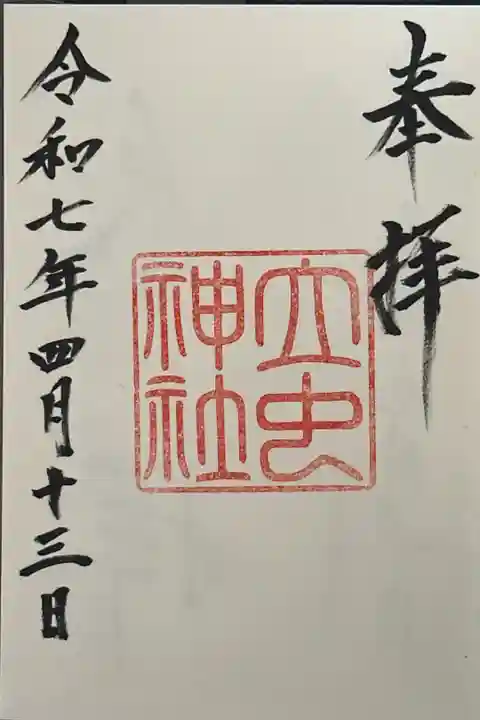 奉拝
立虫
神社
令和七年四月十三日